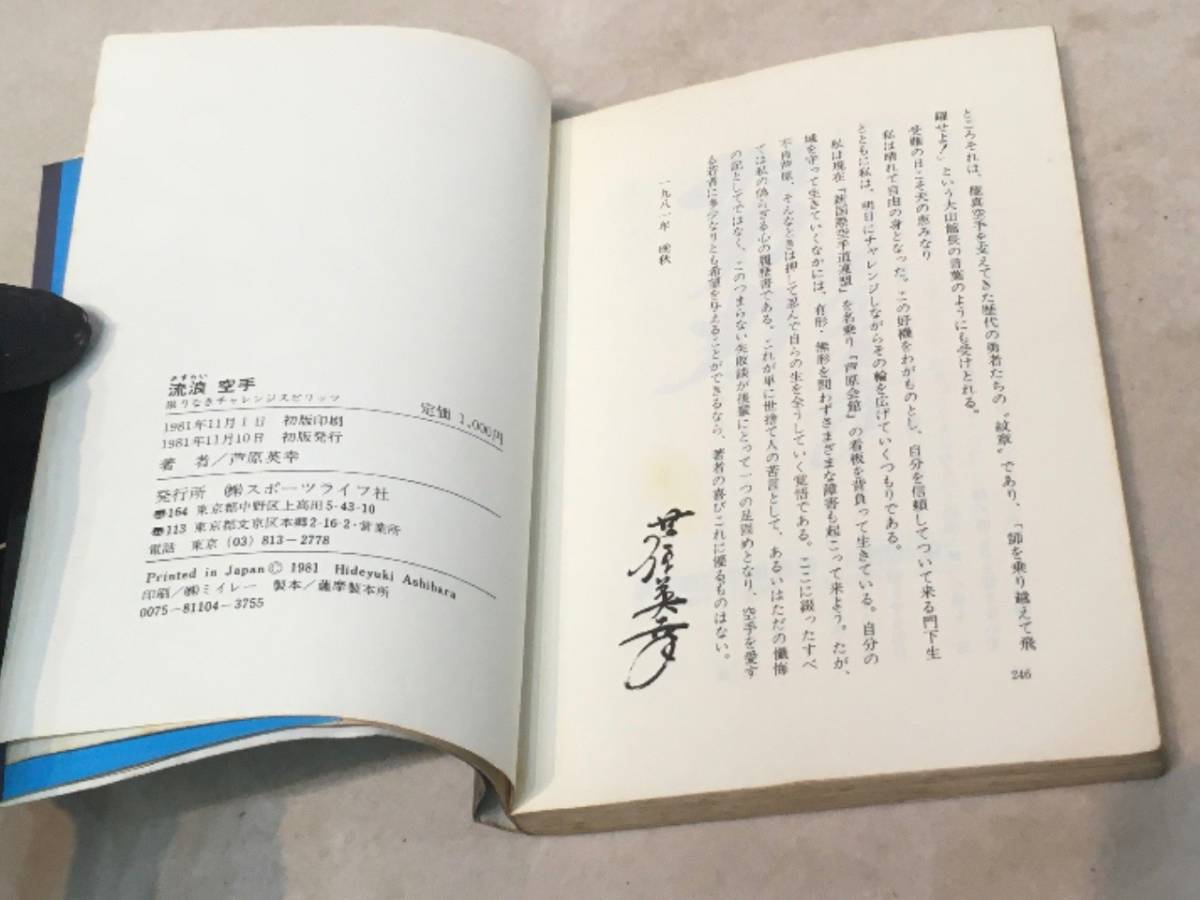 ところそれは、極真空手を支えてきた歴代の勇者たちの〝紋章〟であり、「師を乗り越えて飛
躍せよ!」という大山館長の言葉のようにも受けとれる。
受難の日こそ天の恵みなり
私は晴れて自由の身となった。この好機をわがものとし、自分を信頼してついて来る門下生
とともに私は、明日にチャレンジしながらその輪を広げていくつもりである。
私は現在『新国際空手道連盟』を名乗り『芦原会館』の看板を背負って生きている。自分の
城を守って生きていくなかには、有形・無形を問わずさまざまな障害も起こって来よう。だが、
不肖芦原、そんなときは押して忍んで自らの生を全うしていく覚悟である。ここに綴ったすべ
ては私の偽らざる心の履歴書である。これが単に世捨て人の苦言として、あるいはただの懺悔
の記としてではなく、このつまらない失敗談が後輩にとって一つの足固めとなり、空手を愛す
る若者に多少なりとも希望を与えることができるなら、著者の喜びこれに優るものはない。
一九八一年 晩秋
芦原英幸
246
さすらい
流浪 空手
限りなきチャレンジスピリッツ
定価 1,000円
1981年11月1日 初版印刷
1981年11月10日 初版発行
著 者/芦原英幸
発行所 ㈱スポーツライフ社
〒164 東京都中野区上高田5-43-10
〒113 東京都文京区本郷2-16-2・営業所
電話 東京 (03) 813-2778
Printed in Japan © 1981 Hideyuki Ashihara
印刷/㈱ミイレー 製本/薩摩製本所
0075-81104-3755